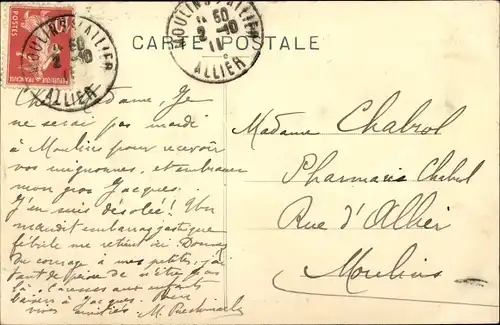 CARTE POSTALE
POSTES
MOULINS S. ALLIER
50
2 - 10
11
ALLIER
MOULINS S. ALLIER
50
2 - 10
11
ALLIER
Chère Madame, Je
ne serai pas mardi
à Moulins pour recevoir
vos mignonnes, et embrasser
mon gros Jacques.
J'en suis désolée! Un
maudit embarras gastrique
fébrile me retient ici. Donnez
du courage à mes petites, j'ai
tant de peine de n'être pas
là. Caresses aux enfants
baisers à Jacques. Bien
vives amitiés. M.
Madame Chabrol
Pharmacie Chabrol
Rue d'Allier
Moulins